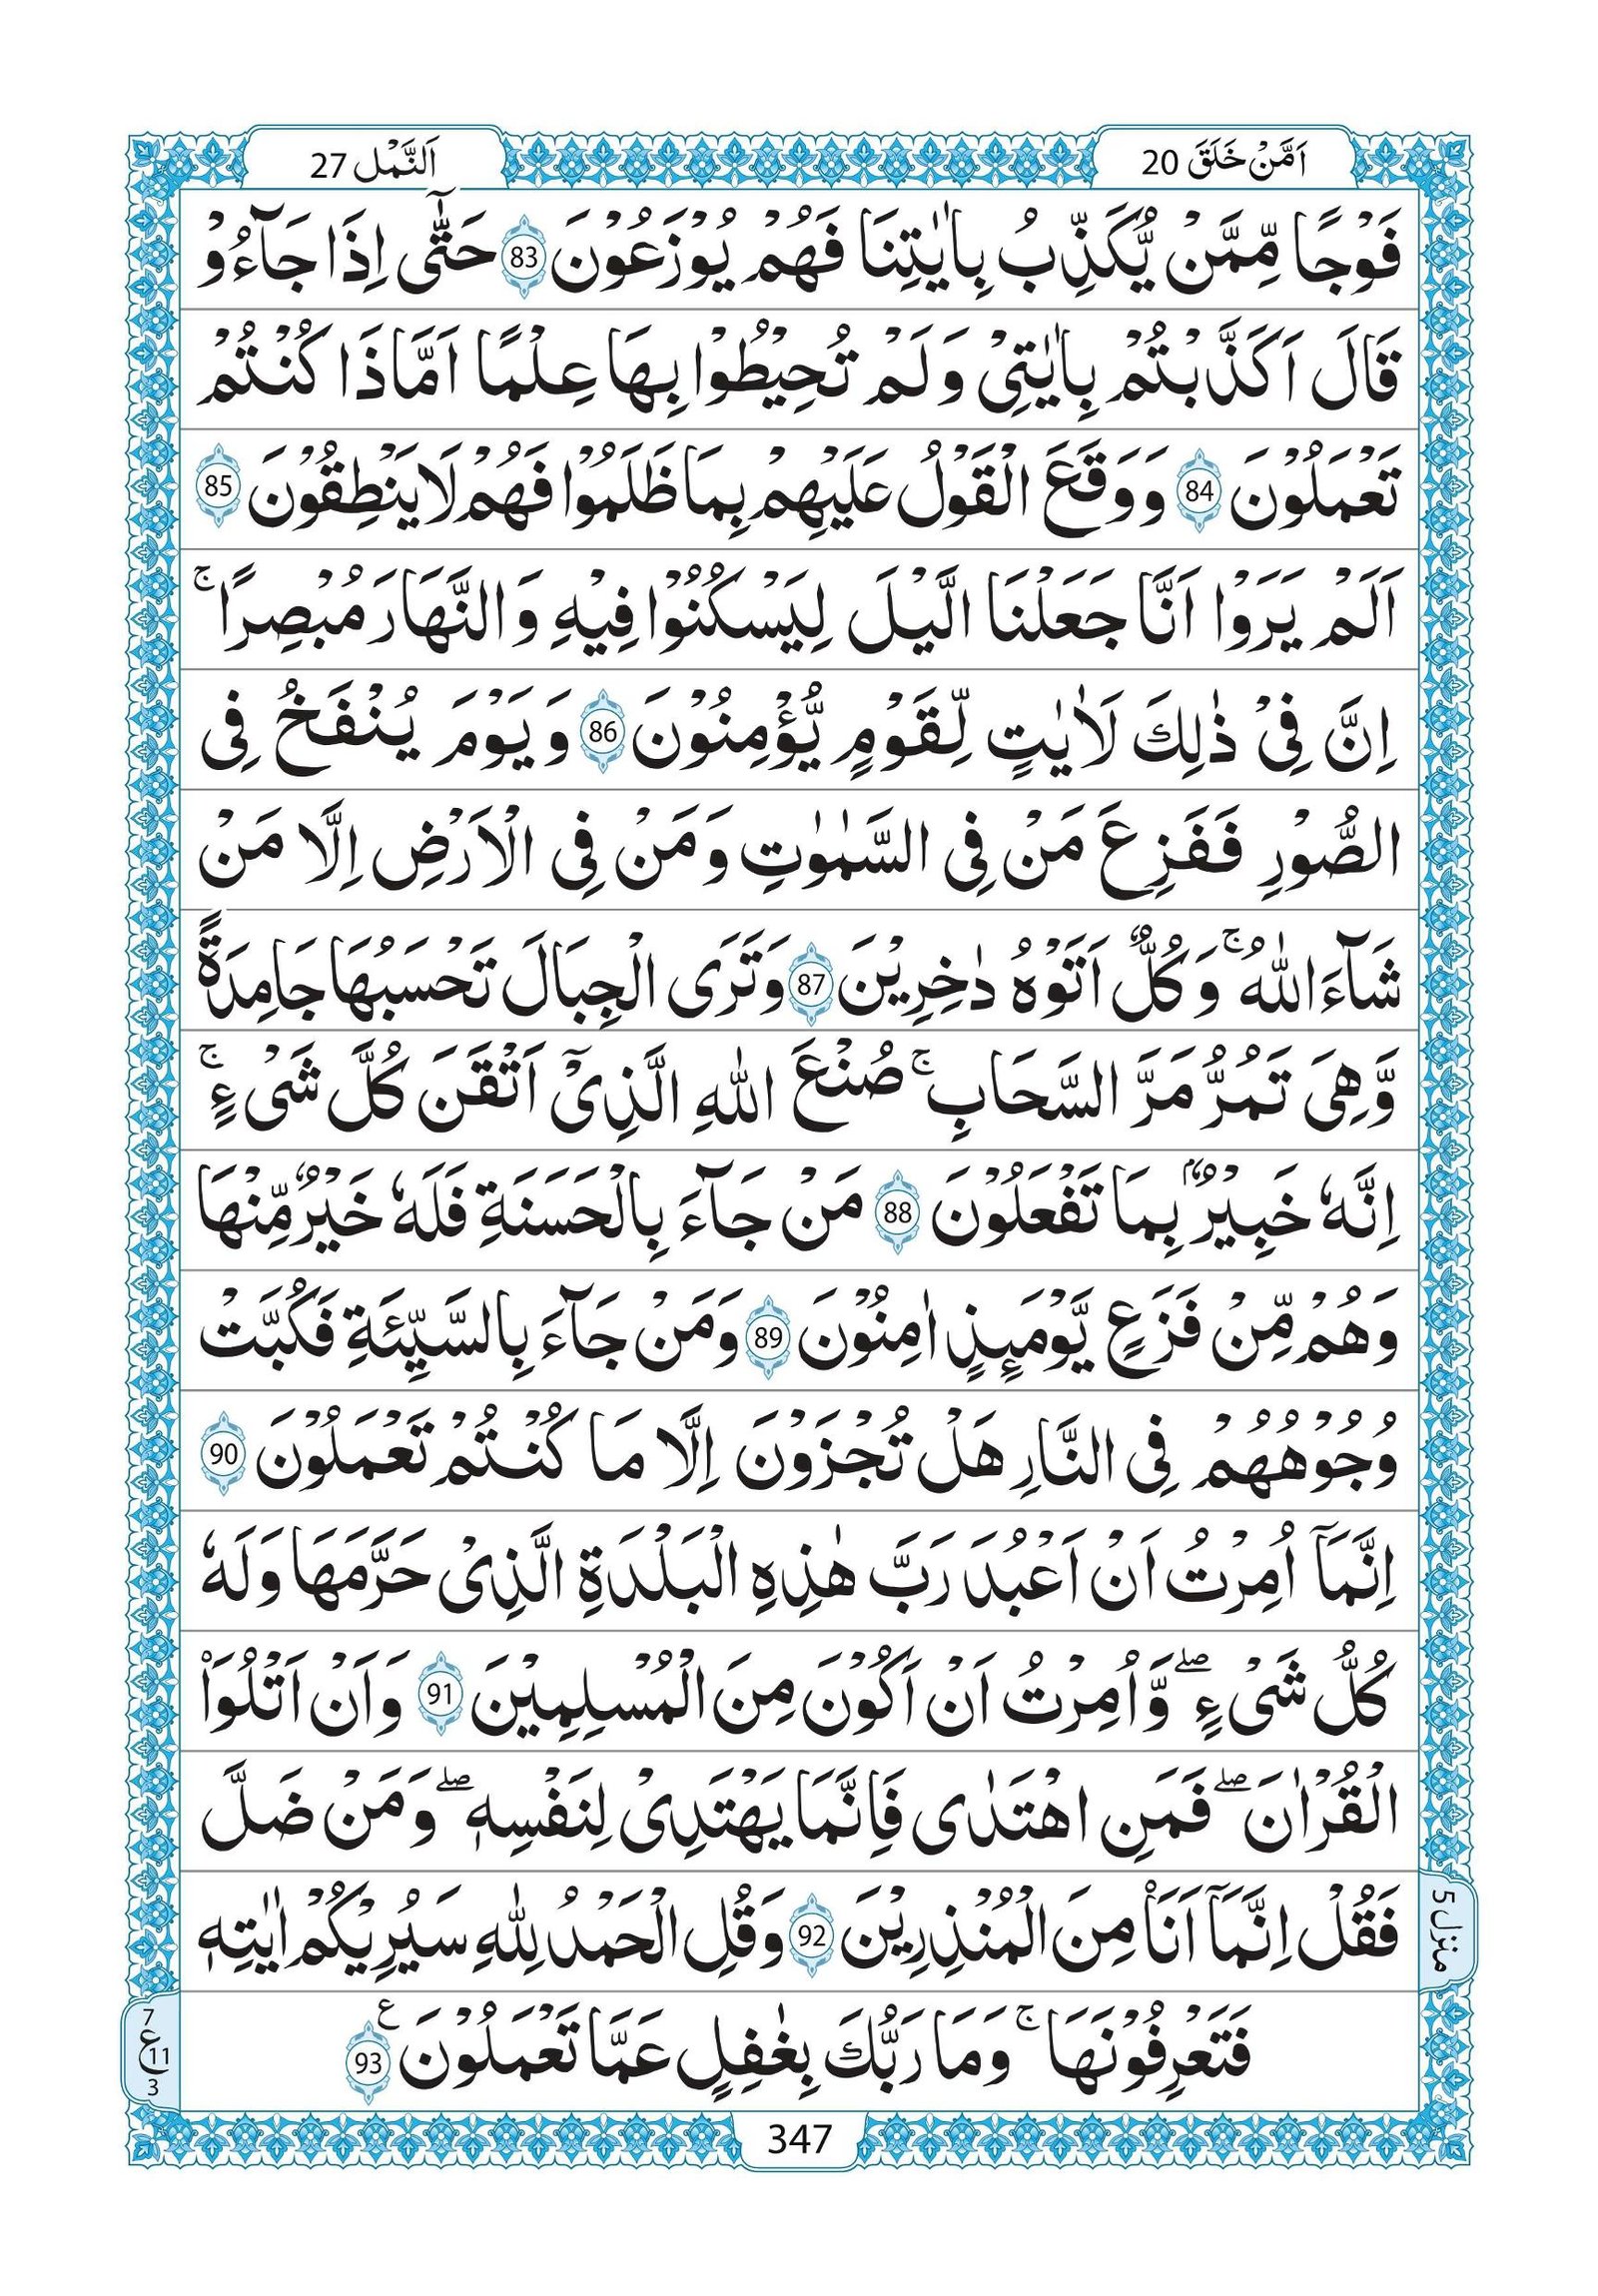 اَمَّنْ خَلَقَ 20
اَلنَّمْل 27
فَوْجًا مِّمَّنْ يُّكَذِّبُ بِاٰيٰتِنَا فَهُمْ يُوْزَعُوْنَ 83 حَتّٰٓى اِذَا جَآءُوْ
قَالَ اَكَذَّبْتُمْ بِاٰيٰتِىْ وَلَمْ تُحِيْطُوْا بِهَا عِلْمًا اَمَّاذَا كُنْتُمْ
تَعْمَلُوْنَ 84 وَوَقَعَ الْقَوْلُ عَلَيْهِمْ بِمَا ظَلَمُوْا فَهُمْ لَا يَنْطِقُوْنَ 85
اَلَمْ يَرَوْا اَنَّا جَعَلْنَا الَّيْلَ لِيَسْكُنُوْا فِيْهِ وَالنَّهَارَ مُبْصِرًا ۚ
اِنَّ فِىْ ذٰلِكَ لَاٰيٰتٍ لِّقَوْمٍ يُّؤْمِنُوْنَ 86 وَيَوْمَ يُنْفَخُ فِى
الصُّوْرِ فَفَزِعَ مَنْ فِى السَّمٰوٰتِ وَمَنْ فِى الْاَرْضِ اِلَّا مَنْ
شَآءَ اللّٰهُ ۚ وَكُلٌّ اَتَوْهُ دٰخِرِيْنَ 87 وَتَرَى الْجِبَالَ تَحْسَبُهَا جَامِدَةً
وَّهِىَ تَمُرُّ مَرَّ السَّحَابِ ۚ صُنْعَ اللّٰهِ الَّذِىْٓ اَتْقَنَ كُلَّ شَىْءٍ ۚ
اِنَّهٗ خَبِيْرٌۢ بِمَا تَفْعَلُوْنَ 88 مَنْ جَآءَ بِالْحَسَنَةِ فَلَهٗ خَيْرٌ مِّنْهَا
وَهُمْ مِّنْ فَزَعٍ يَّوْمَئِذٍ اٰمِنُوْنَ 89 وَمَنْ جَآءَ بِالسَّيِّئَةِ فَكُبَّتْ
وُجُوْهُهُمْ فِى النَّارِ هَلْ تُجْزَوْنَ اِلَّا مَا كُنْتُمْ تَعْمَلُوْنَ 90
اِنَّمَآ اُمِرْتُ اَنْ اَعْبُدَ رَبَّ هٰذِهِ الْبَلْدَةِ الَّذِىْ حَرَّمَهَا وَلَهٗ
كُلُّ شَىْءٍ ۖ وَّاُمِرْتُ اَنْ اَكُوْنَ مِنَ الْمُسْلِمِيْنَ 91 وَاَنْ اَتْلُوَا۟
الْقُرْاٰنَ ۖ فَمَنِ اهْتَدٰى فَاِنَّمَا يَهْتَدِىْ لِنَفْسِهٖ ۖ وَمَنْ ضَلَّ
فَقُلْ اِنَّمَآ اَنَا۟ مِنَ الْمُنْذِرِيْنَ 92 وَقُلِ الْحَمْدُ لِلّٰهِ سَيُرِيْكُمْ اٰيٰتِهٖ
فَتَعْرِفُوْنَهَا ۚ وَمَا رَبُّكَ بِغٰفِلٍ عَمَّا تَعْمَلُوْنَ ع 93
منزل 5
7
ع 11
3
347